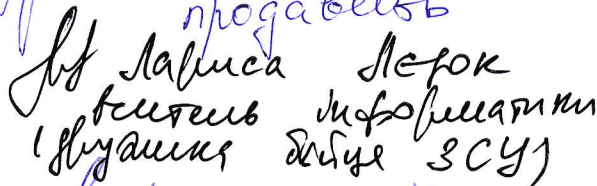 продавець
Лариса Лєрок
вчитель інформатики
(дружина бойця ЗСУ)